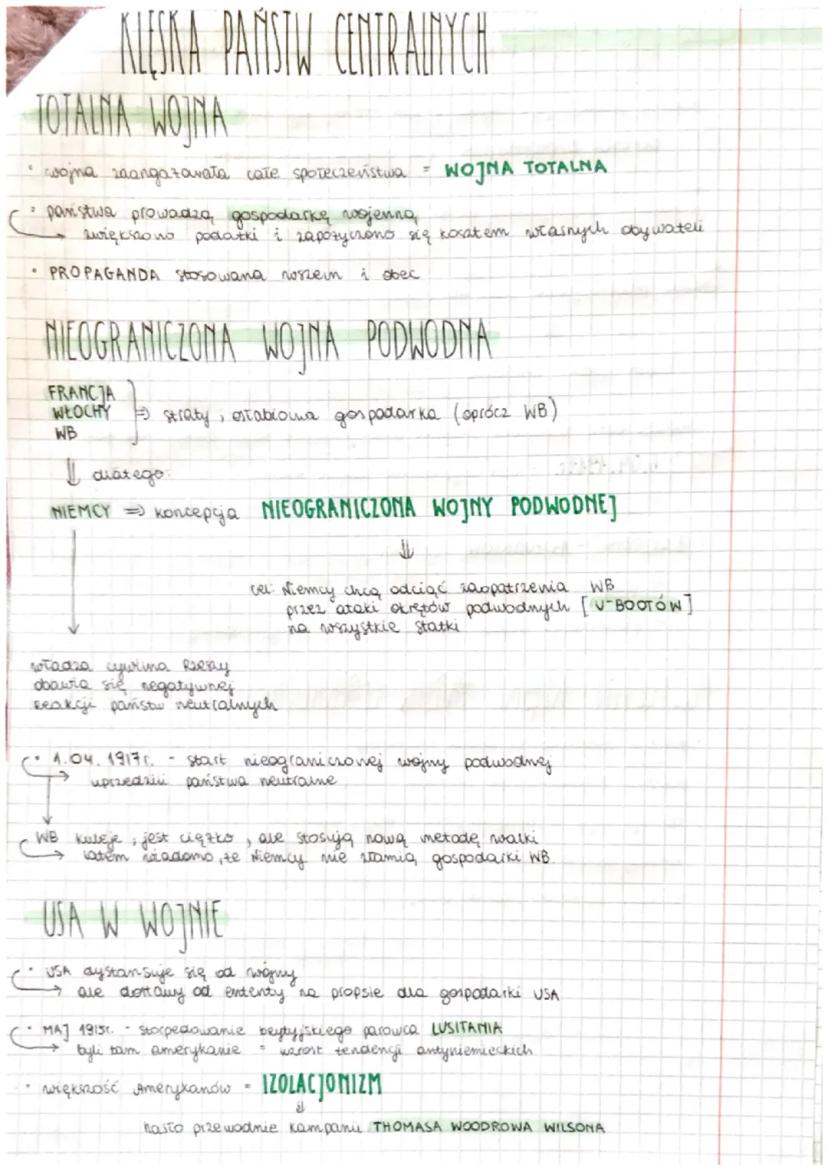 KLĘSKA PAŃSTW CENTRALNYCH
TOTALNA WOJNA
• wojna zaangażowała całe społeczeństwa = WOJNA TOTALNA
• państwa prowadzą gospodarkę wojenną
→ zwiększono podatki i zapożyczono się kosztem własnych obywateli
• PROPAGANDA stosowana wszem i obec
NIEOGRANICZONA WOJNA PODWODNA
FRANCJA
WŁOCHY ⇒ straty, osłabiona gospodarka (oprócz WB)
WB
⇓ dlatego:
NIEMCY ⇒ koncepcja NIEOGRANICZONA WOJNY PODWODNEJ
⇓
cel: Niemcy chcą odciąć zaopatrzenia WB
przez ataki okrętów podwodnych [U-BOOTÓW]
na wszystkie statki
władza cywilna Rzeszy
obawia się negatywnej
reakcji państw neutralnych
• 1.04.1917r. - start nieograniczonej wojny podwodnej
→ uprzedzili państwa neutralne
WB kuleje, jest ciężko, ale stosują nową metodę walki
→ latem wiadomo, że Niemcy nie złamią gospodarki WB
USA W WOJNIE
• USA dystansuje się od wojny
→ ale dostawy od ententy na propsie dla gospodarki USA
• MAJ 1915r. - storpedowanie brytyjskiego parowca LUSITANIA
→ byli tam amerykanie = wzrost tendencji antyniemieckich
• większość Amerykanów = IZOLACJONIZM
⇓
hasło przewodnie kampanii THOMASA WOODROWA WILSONA